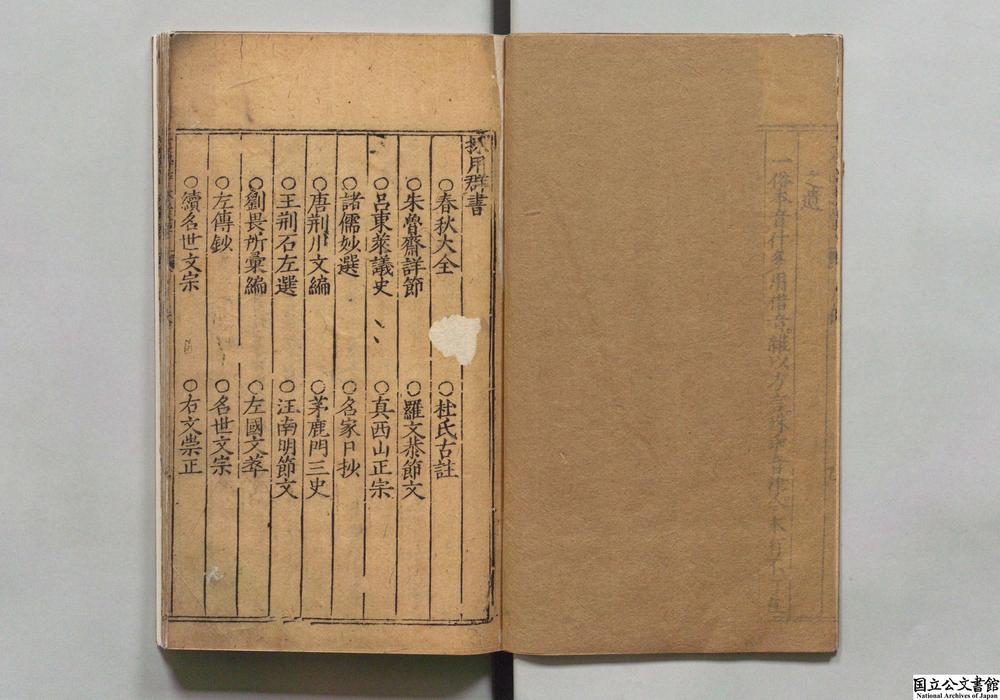 採用群書
○春秋大全 ○杜氏古註
○朱魯齋詳節 ○羅文恭節文
○呂東萊議史 ○真西山正宗
○諸儒妙選 ○名家日抄
○唐荊川文編 ○茅鹿門三史
○王荊石左選 ○汪南明節文
○劉畏所彙編 ○左國文萃
○左傳鈔 ○名世文宗
○續名世文宗 ○右文崇正
国立公文書館
National Archives of Japan